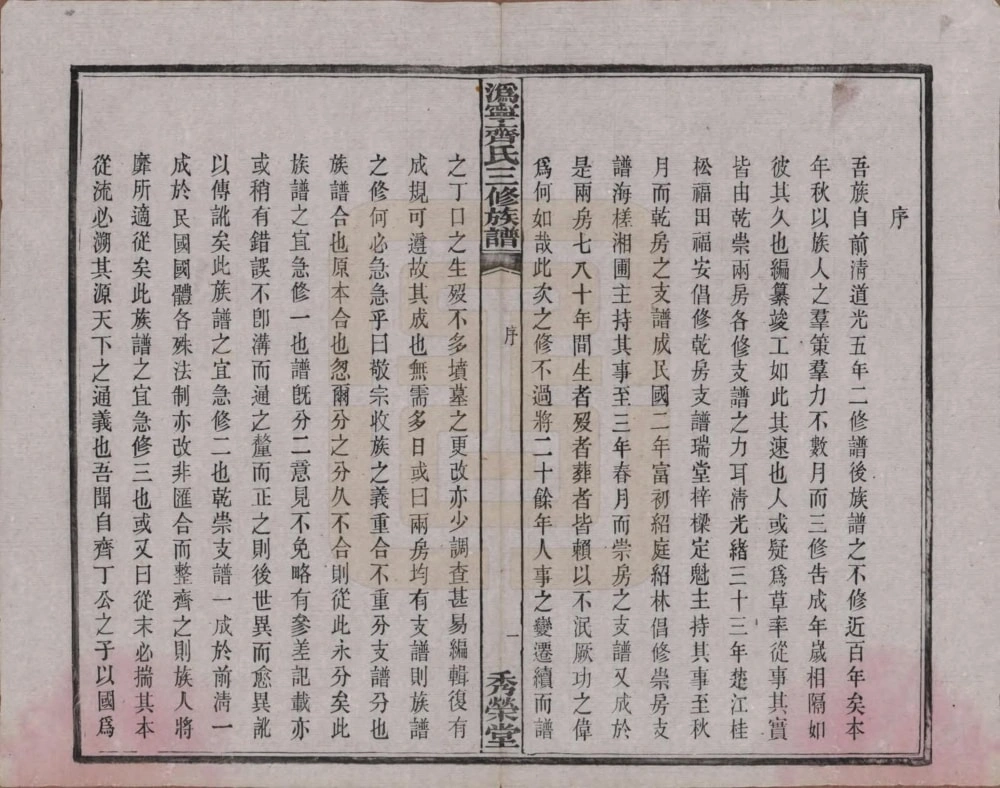 序
吾族自前清道光五年二修譜後族譜之不修近百年矣本
年秋以族人之羣策羣力不數月而三修告成年嵗相隔如
彼其久也編纂竣工如此其速也人或疑爲草率從事其實
皆由乾崇兩房各修支譜之力耳清光緒三十三年楚江桂
松福田福安倡修乾房支譜瑞堂梓樑定魁主持其事至秋
月而乾房之支譜成民國二年富初紹庭紹林倡修崇房支
譜海槎湘圃主持其事至三年春月而崇房之支譜又成於
是兩房七八十年間生者歿者葬者皆賴以不泯厥功之偉
爲何如哉此次之修不過將二十餘年人事之變遷續而譜
潙寧齊氏三修族譜
序
一
秀榮堂
之丁口之生歿不多墳墓之更改亦少調查甚易編輯復有
成規可遵故其成也無需多日或曰兩房均有支譜則族譜
之修何必急急乎曰敬宗收族之義重合不重分支譜分也
族譜合也原本合也忽爾分之分久不合則從此永分矣此
族譜之宜急修一也譜旣分二意見不免略有參差記載亦
或稍有錯誤不卽溝而通之釐而正之則後世異而愈異訛
以傳訛矣此族譜之宜急修二也乾崇支譜一成於前清一
成於民國國體各殊法制亦改非匯合而整齊之則族人將
靡所適從矣此族譜之宜急修三也或又曰從末必揣其本
從流必溯其源天下之通義也吾聞自齊丁公之子以國爲